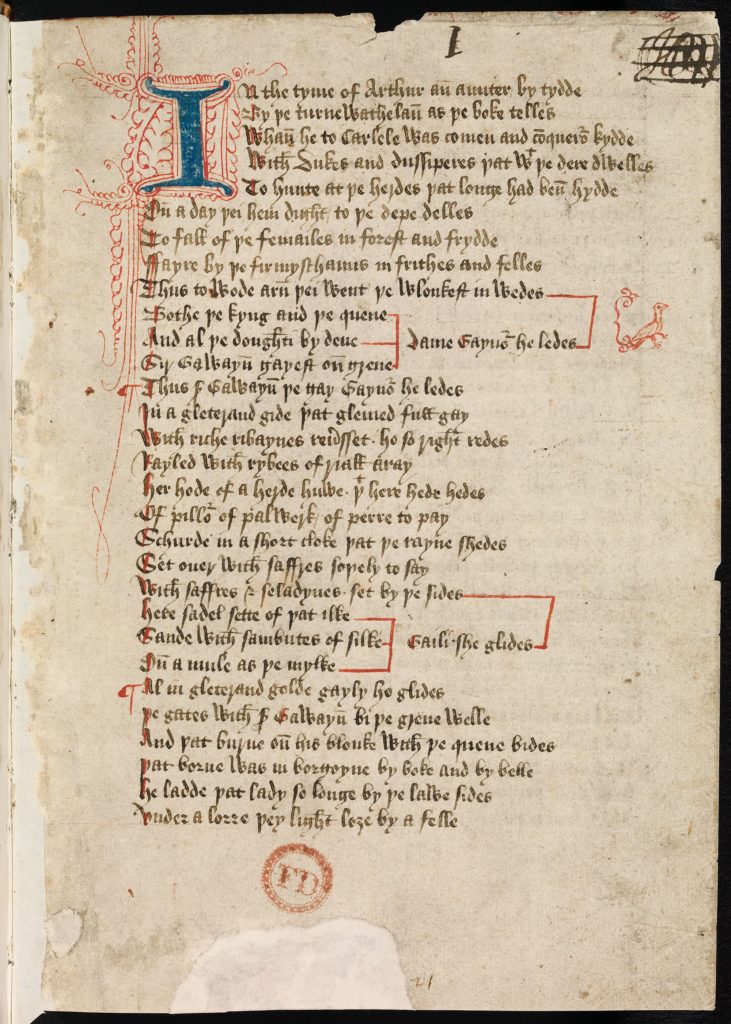 I
In the tyme of Arthur an aunter by tydde
By þe turne wathelan as þe boke telles
Whan he to Carlele was comen and coqueror kydde
With dukes and dussiperes þat wt þe dere dwelles
To hunte at þe herdes þat longe had ben hydde
On a day þei hem dight to þe depe delles
To fall of þe femailes in forest and frydde
Fayre by þe firmyschamis in frithes and felles
Thus to wode arn þei went þe wlonkest in wedes
Bothe þe kyng and þe quene
And al þe doughti by dene Dame Gaynor he ledes
Sir Gawayn gayest on grene
Thus sr Gawayn þe gay Gaynor he ledes
In a gleterand gide þat glemed full gay
With riche ribaynes reidsset ho so right redes
Rayled with rybees of riall aray
her hode of a herde huwe þt here hede hedes
Of pillor of palwerk of perre to pay
Schurde in a short cloke þat þe rayne shedes
Set ouer with saffres soþely to say
With saffres & seladynes set by þe sides
here sadel sette of þat ilke
Saude with sambutes of silke Gaili she glides
On a mule as þe mylke
Al in gleterand golde gayly ho glides
þe gates with sr Gawayn bi þe grene welle
And þat burne on his blonke with þe quene bides
þat borne was in borgoyne by boke and by belle
he ladde þat lady so longe by þe lawe sides
Vnder a lorre þey light loȝe by a felle
FD
21